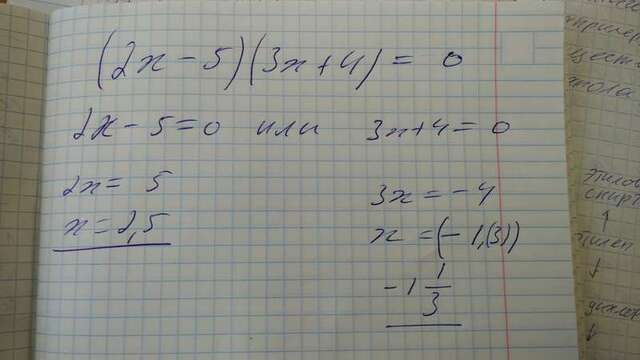 (2x - 5)(3x + 4) = 0
2x - 5 = 0 или 3x + 4 = 0
2x = 5
x = 2,5
3x = -4
x = (-1,(3))
-1 1/3
спирт
↑
↓
↓